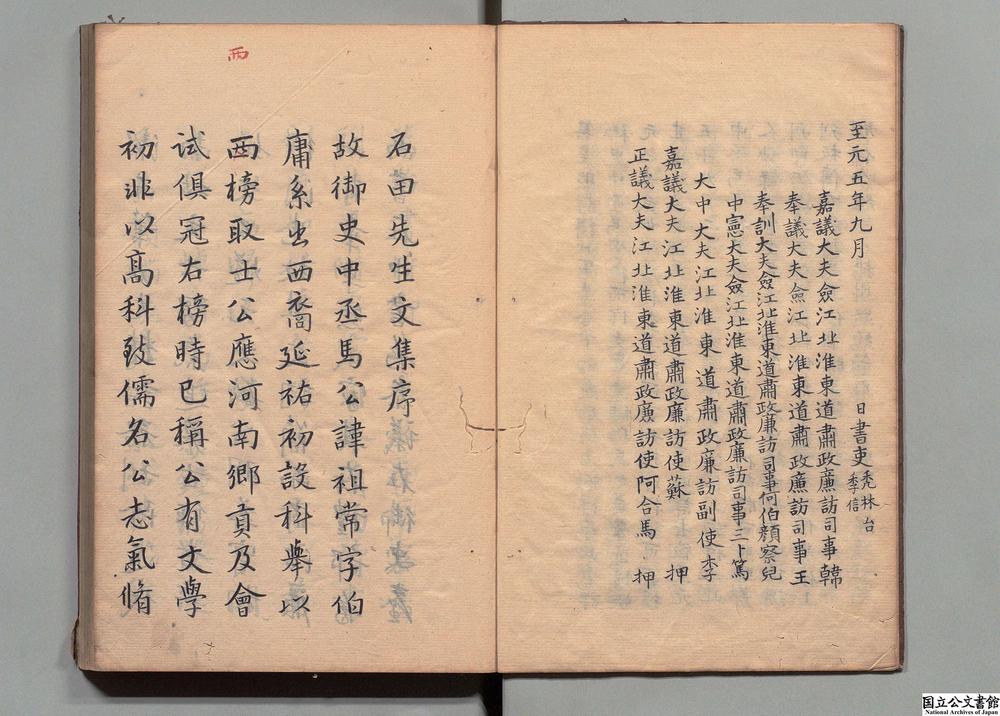 至元五年九月 日書吏 禿林台 季信
嘉議大夫僉江北淮東道肅政廉訪司事韓
奉議大夫僉江北淮東道肅政廉訪司事王
奉訓大夫僉江北淮東道肅政廉訪司事何伯顔察兒
中憲大夫僉江北淮東道肅政廉訪司事三卜篤
大中大夫江北淮東道肅政廉訪副使李
嘉議大夫江北淮東道肅政廉訪使蘇 押
正議大夫江北淮東道肅政廉訪使阿合馬 押
西
石田先生文集序
故御史中丞馬公諱祖常字伯
庸系出西裔延祐初設科舉以
西榜取士公應河南鄉貢及會
試俱冠右榜時已稱公有文學
初非以高科致儒名公志氣脩
国立公文書館
National Archives of Japan